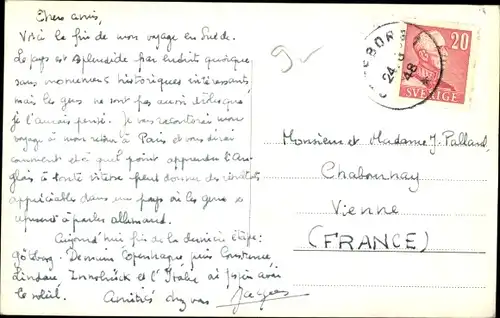 Chers amis,
Voici la fin de mon voyage en Suède.
Le pays est splendide par endroit quoique
sans monuments historiques intéressants,
mais les gens ne sont pas aussi that que
je l'aurais pensé. Je vous raconterai mon
voyage à mon retour à Paris et vous dirai
comment et à quel point apprendre l'An-
glais à toute vitesse peut donner des résultats
appréciables dans un pays où les gens
refusent à parler allemand.
Aujourd'hui fin de la dernière étape:
Götborg. Demain Copenhague puis Constance,
Lindau, Innsbrück et l'Italie où j'espère avoir
le soleil. Amitiés chez vous Jacques
9-
GÖTEBORG
24. 8
48
20
SVERIGE
Monsieur et Madame J. Palland,
Chabournay
Vienne
(FRANCE)